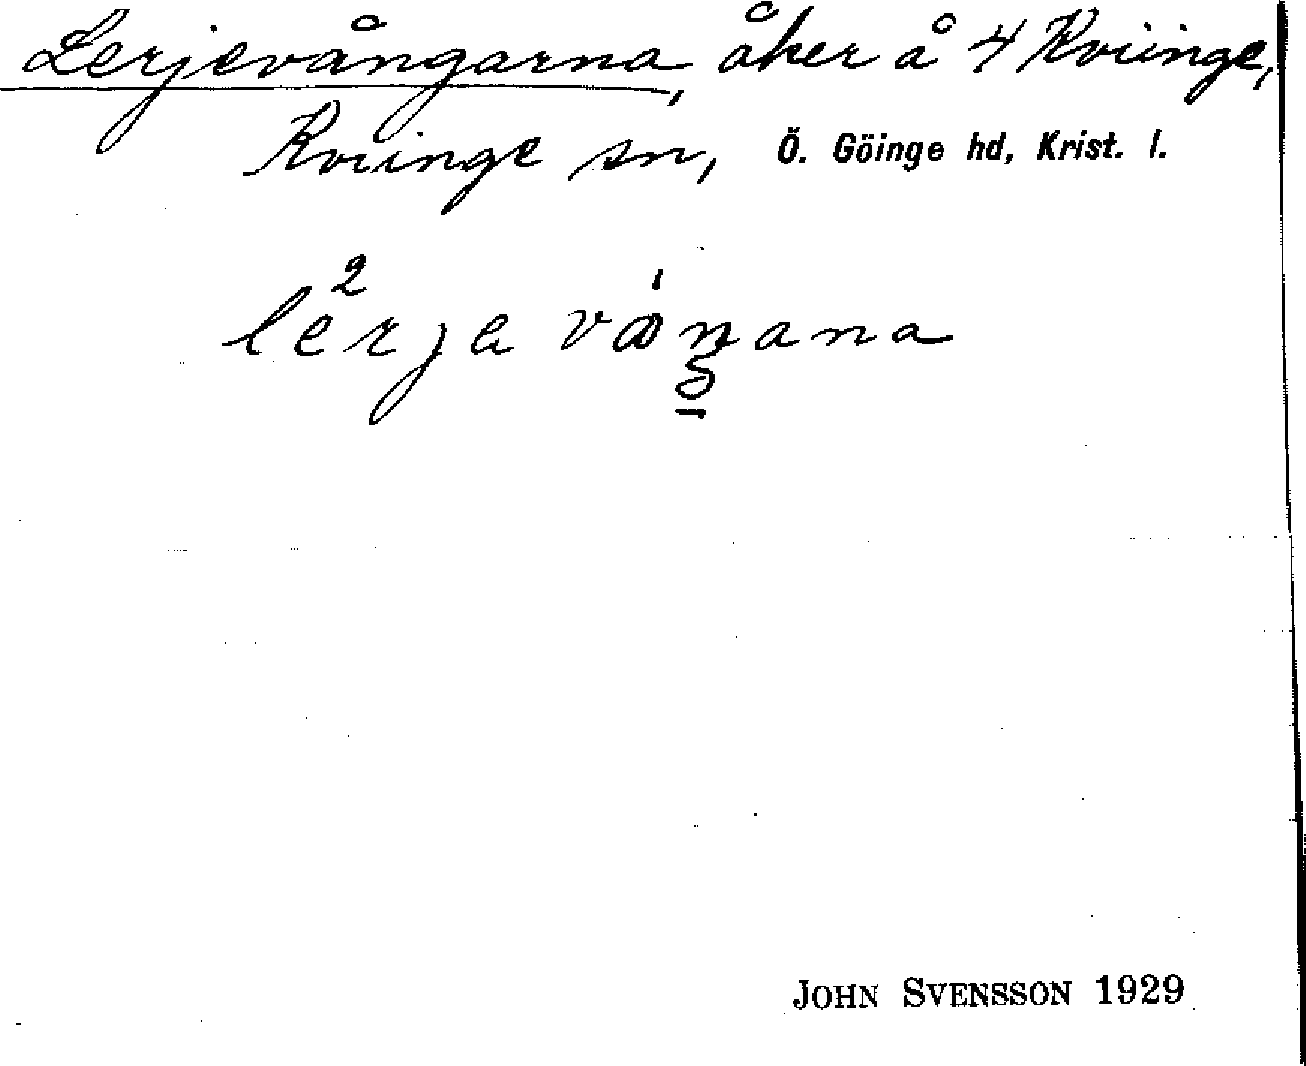 Lerjevångarna, åker å 4 Kviinge,
Kviinge sn, Ö. Göinge hd, Krist. l.
JOHN SVENSSON 1929